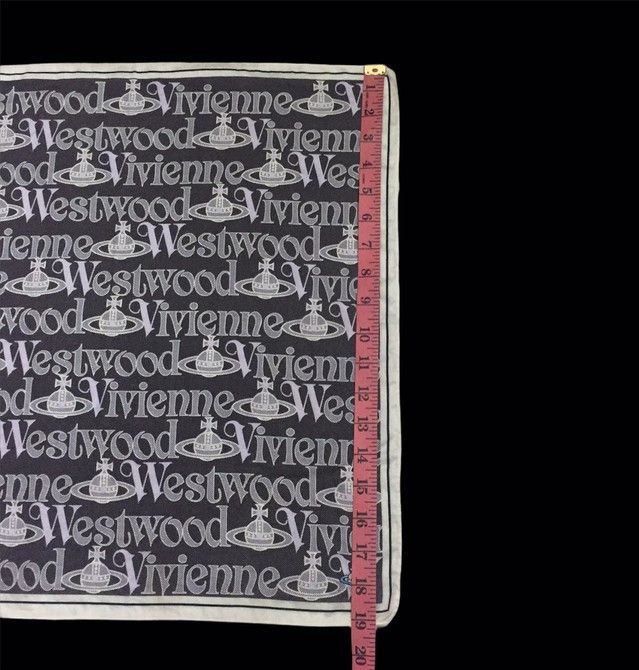 stwood Vivienne V
Westwood Vivienn
Vivienne Wes
Westwood Vivienn
ienne Westwood
Westwood Vivi
wood Vivienne V
Westwood Vivienn
od Vivienne Wes
Westwood Vivienn
Vivienne Westwood
Westwood Vivi
ood Vivienne
1
2
3
4
5
6
7
8
9
10
11
12
13
14
15
16
17
18
19
20